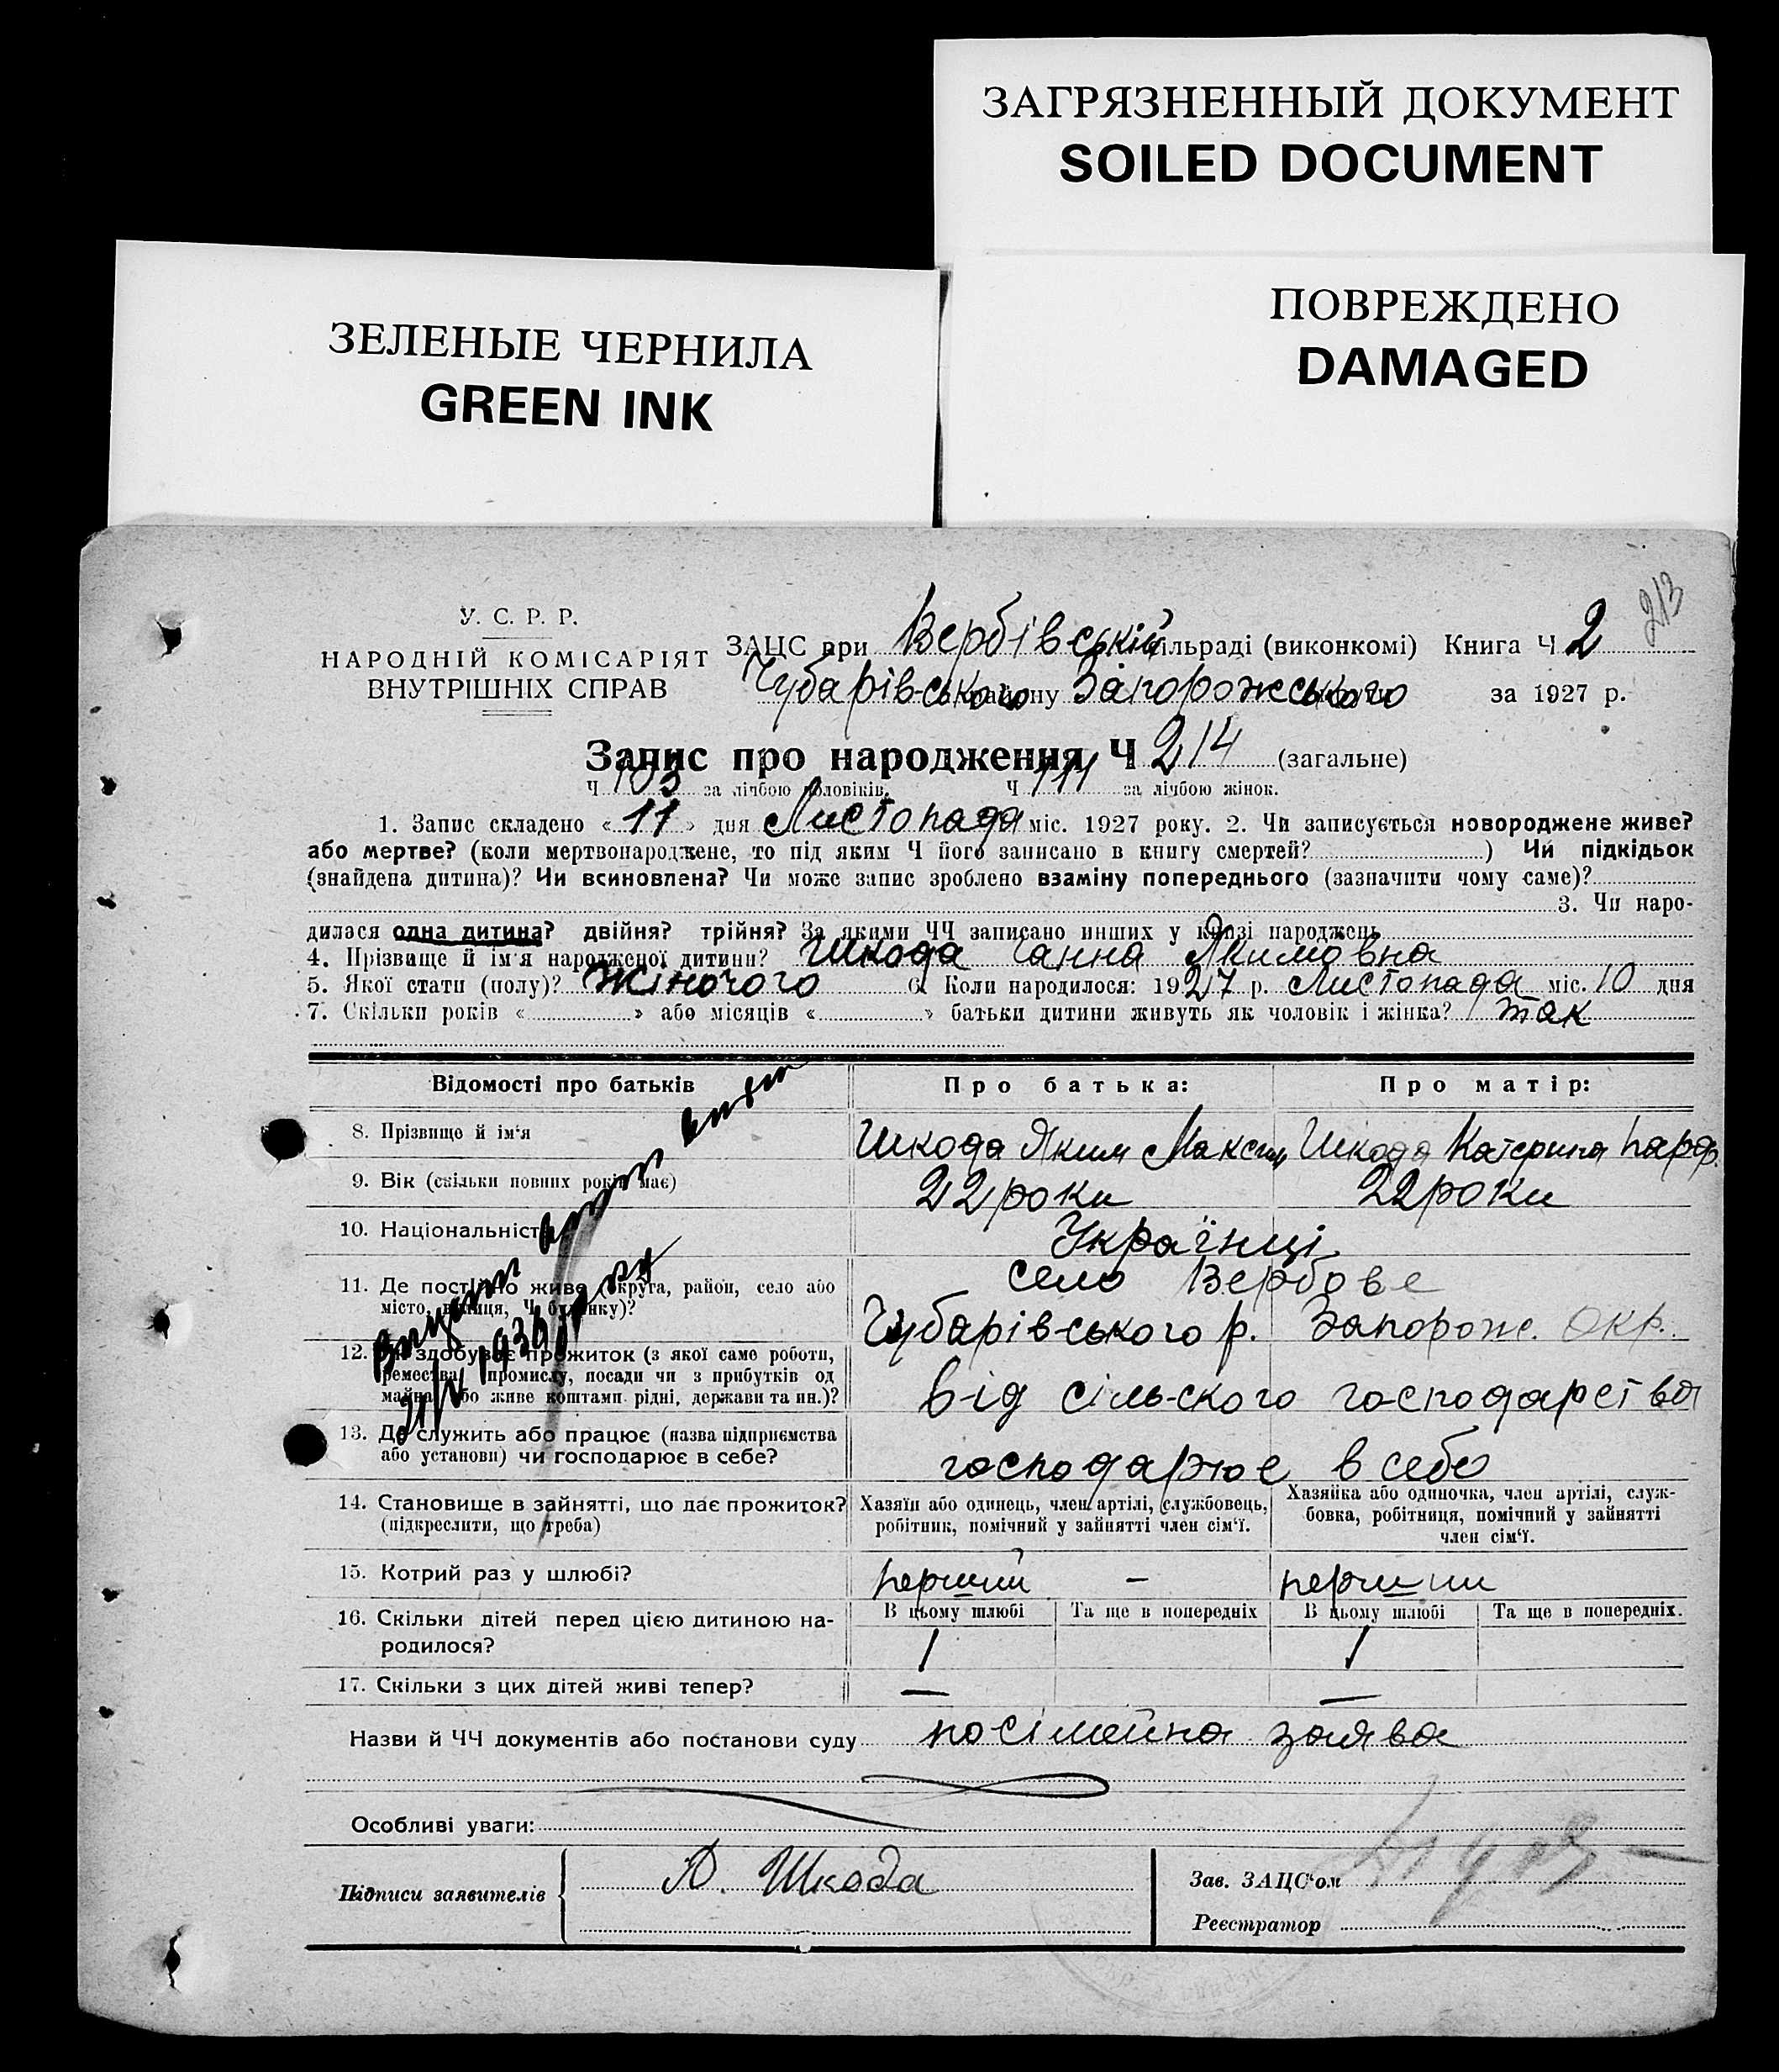 ЗАГРЯЗНЕННЫЙ ДОКУМЕНТ
SOILED DOCUMENT
ЗЕЛЕНЫЕ ЧЕРНИЛА
GREEN INK
ПОВРЕЖДЕНО
DAMAGED
213
У. С. Р. Р.
НАРОДНІЙ КОМІСАРІЯТ
ВНУТРІШНІХ СПРАВ
ЗАЦС при Вербівській сільраді (виконкомі) Книга Ч 2
Чубарівського району Запорожського за 1927 р.
Запис про народження Ч 214 (загальне)
Ч 103 за лічбою чоловіків. Ч 111 за лічбою жінок.
1. Запис складено « 11 » дня Листопада міс. 1927 року. 2. Чи записується новороджене живе?
або мертве? (коли мертвонароджене, то під яким Ч його записано в книгу смертей? ) Чи підкідьок
(знайдена дитина)? Чи всиновлена? Чи може запис зроблено взаміну попереднього (зазначити чому саме)?
3. Чи наро-
дилася одна дитина? двійня? трійня? За якими ЧЧ записано инших у книзі народжень
4. Прізвище й ім'я народженої дитини? Шкода Ганна Якимовна
5. Якої стати (полу)? Жіночого 6. Коли народилося: 1927 р. Листопада міс. 10 дня
7. Скільки років « » або місяців « » батьки дитини живуть як чоловік і жінка? так
Відомості про батьків Про батька: Про матір:
8. Прізвище й ім'я Шкода Яким Максим Шкода Катерина Парф.
9. Вік (скільки повних років має) 22 роки 22 роки
10. Національність Українці
11. Де постійно живе (округа, район, село або село Вербове
місто, вулиця, Ч будинку)? Чубарівського р. Запорож. Окр.
12. здобуває прожиток (з якої саме роботи,
ремества, промислу, посади чи з прибутків од
майна або живе коштами рідні, держави та ин.)? від сільского господарства
13. Де служить або працює (назва підприємства
або установи) чи господарює в себе? господарює в себе
14. Становище в зайнятті, що дає прожиток? Хазяїн або одинець, член артілі, службовець, Хазяйка або одиночка, член артілі, служ-
(підкреслити, що треба) робітник, помічний у зайнятті член сім'ї. бовка, робітниця, помічний у зайнятті
член сім'ї.
15. Котрий раз у шлюбі? перший – перший
16. Скільки дітей перед цією дитиною на- В цьому шлюбі Та ще в попередніх В цьому шлюбі Та ще в попередніх.
родилося? 1 1
17. Скільки з цих дітей живі тепер? — —
Назви й ЧЧ документів або постанови суду посімейна заява
Особливі уваги:
Підписи заявителів Я. Шкода Зав. ЗАЦС'ом
Реєстратор